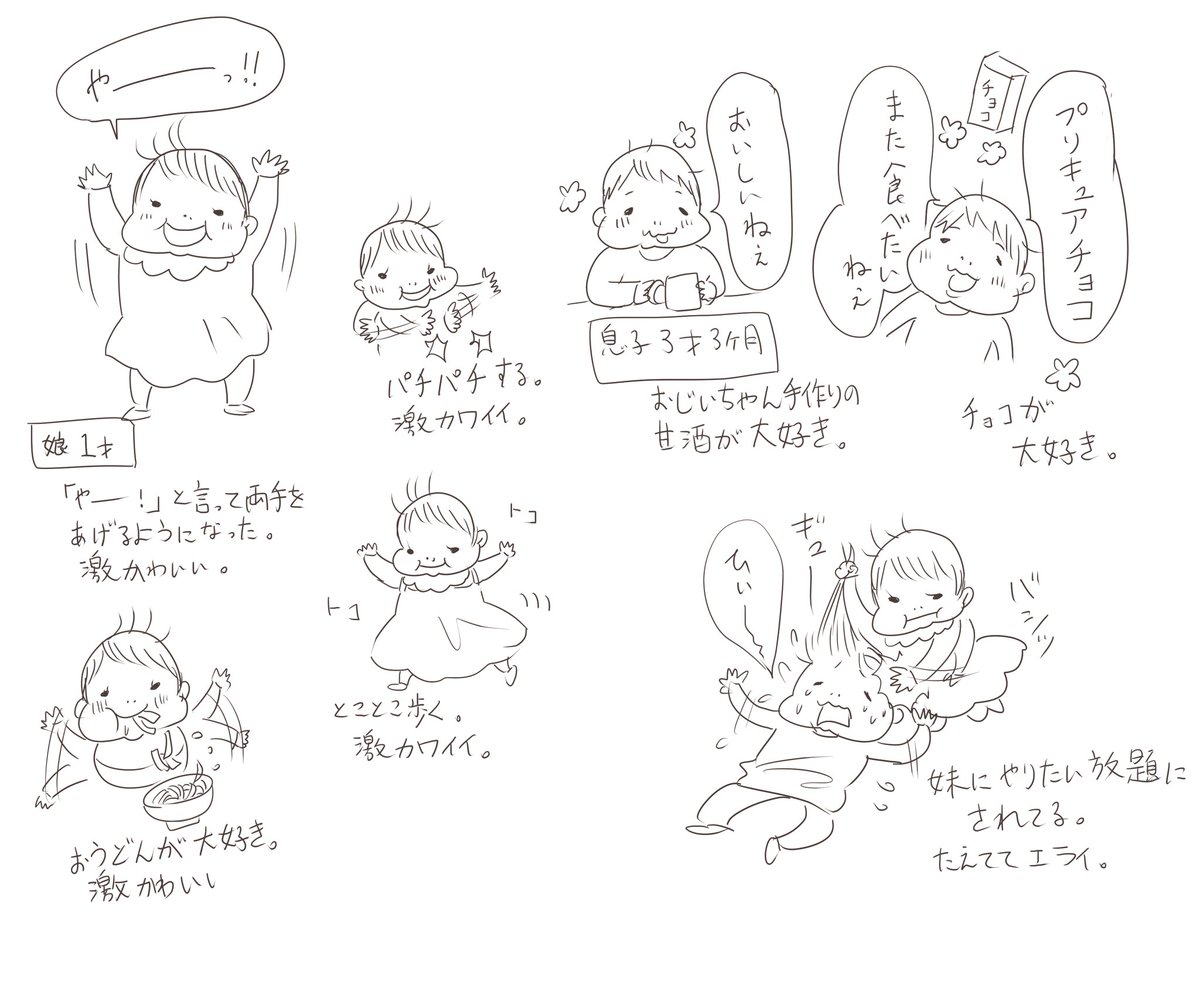 やーーっっ!!
娘 1才
「やー!」と言って両手を
あげるようになった。
激かわいい。
パチパチする。
激カワイイ。
トコ
トコ
とことこ歩く。
激カワイイ。
おうどんが大好き。
激かわいい
おいしいねぇ
息子 3才3ヶ月
おじいちゃん手作りの
甘酒が大好き。
プリキュアチョコ
チョコ
また食べたい
ねぇ
チョコが
大好き。
ひぃー
ギュー
バシッ
妹にやりたい放題に
されてる。
たえててエライ。